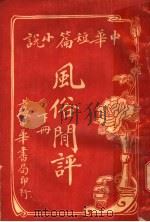 中華短篇小說
風俗閒評
冊
華書局印行